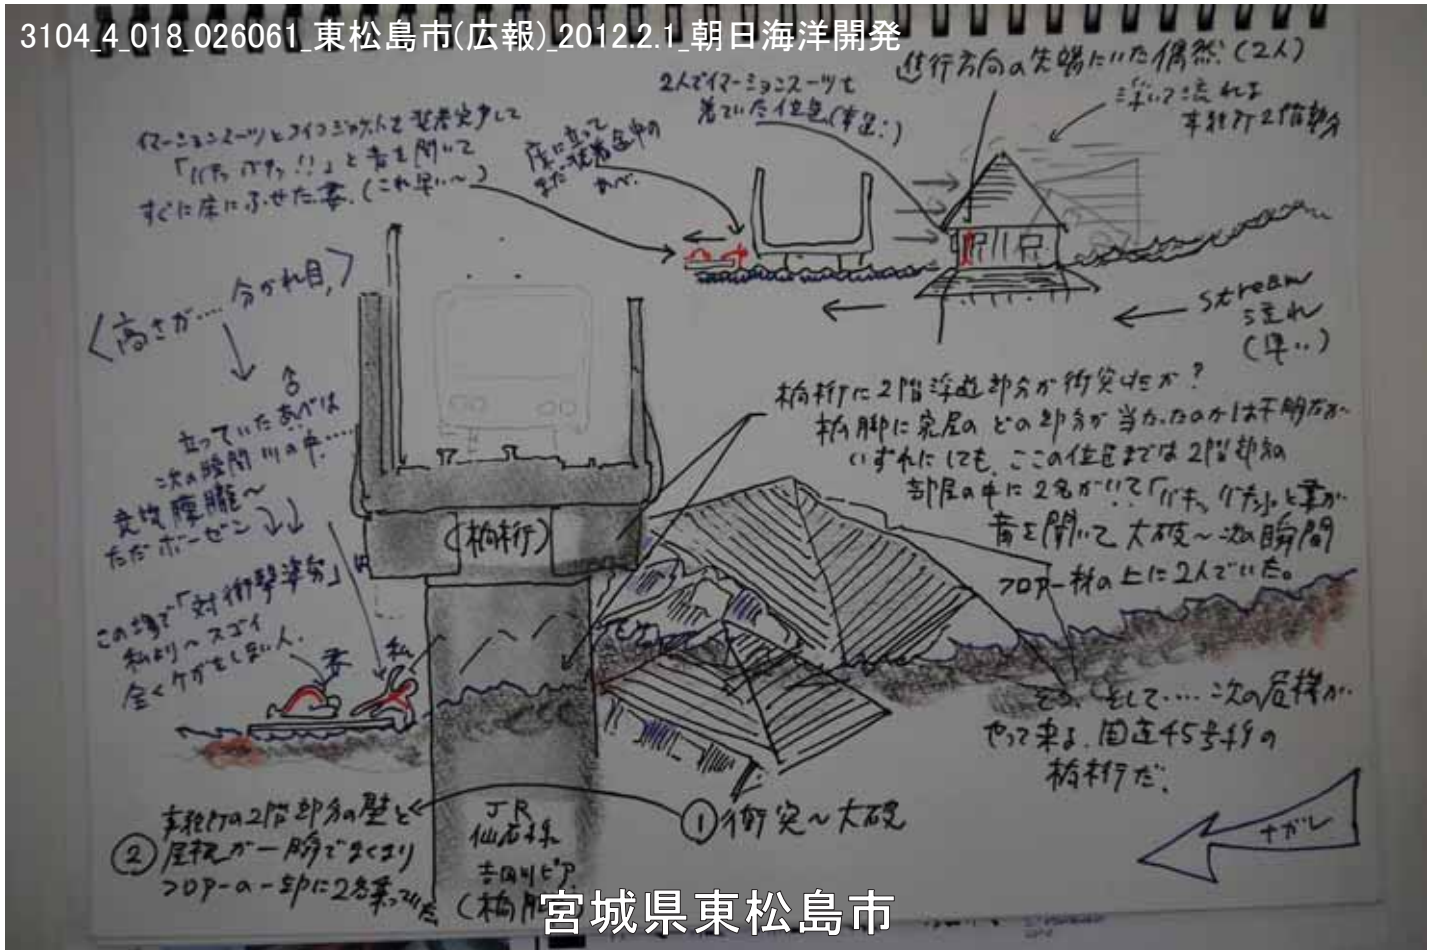 3104_4_018_026061_東松島市(広報)_2012.2.1_朝日海洋開発
進行方向の先端にいた偶然(2人)
2人でイマーションスーツを
着ていた位置(幸運!)
浮いて流れる
事務所2階部分
イマーションスーツとライフジャケットを装着完了して
「バキッ バキッ!!」と音を聞いて
すぐに床にふせた妻.(これ早い〜)
床に立って
まだ装着途中の
あべ.
〈高さが.... 分かれ目,〉
立っていたあべは
次の瞬間 川の中....
意識朦朧〜
ただボーゼン
この場で「対衝撃姿勢」
私より〜スゴイ
全くケガをしない人.
妻
私
stream
流れ
橋桁に2階浮遊部分が衝突したか?
橋脚に家屋のどの部分が当たったのかは不明だが
いずれにしても、ここの位置までは2階部分の
部屋の中に2名がいて「バキッ バキッ」と妻が
音を聞いて大破〜次の瞬間
フロアー材の上に2人でいた。
(橋桁)
そして.... 次の危機が
やって来る. 国道45号線の
橋桁だ.
ナガレ
①衝突〜大破
②事務所の2階部分の壁と
屋根が一瞬でまくまり
フロアーの一部に2名乗っていた
JR
仙石線
吉田川ピア
宮城県東松島市